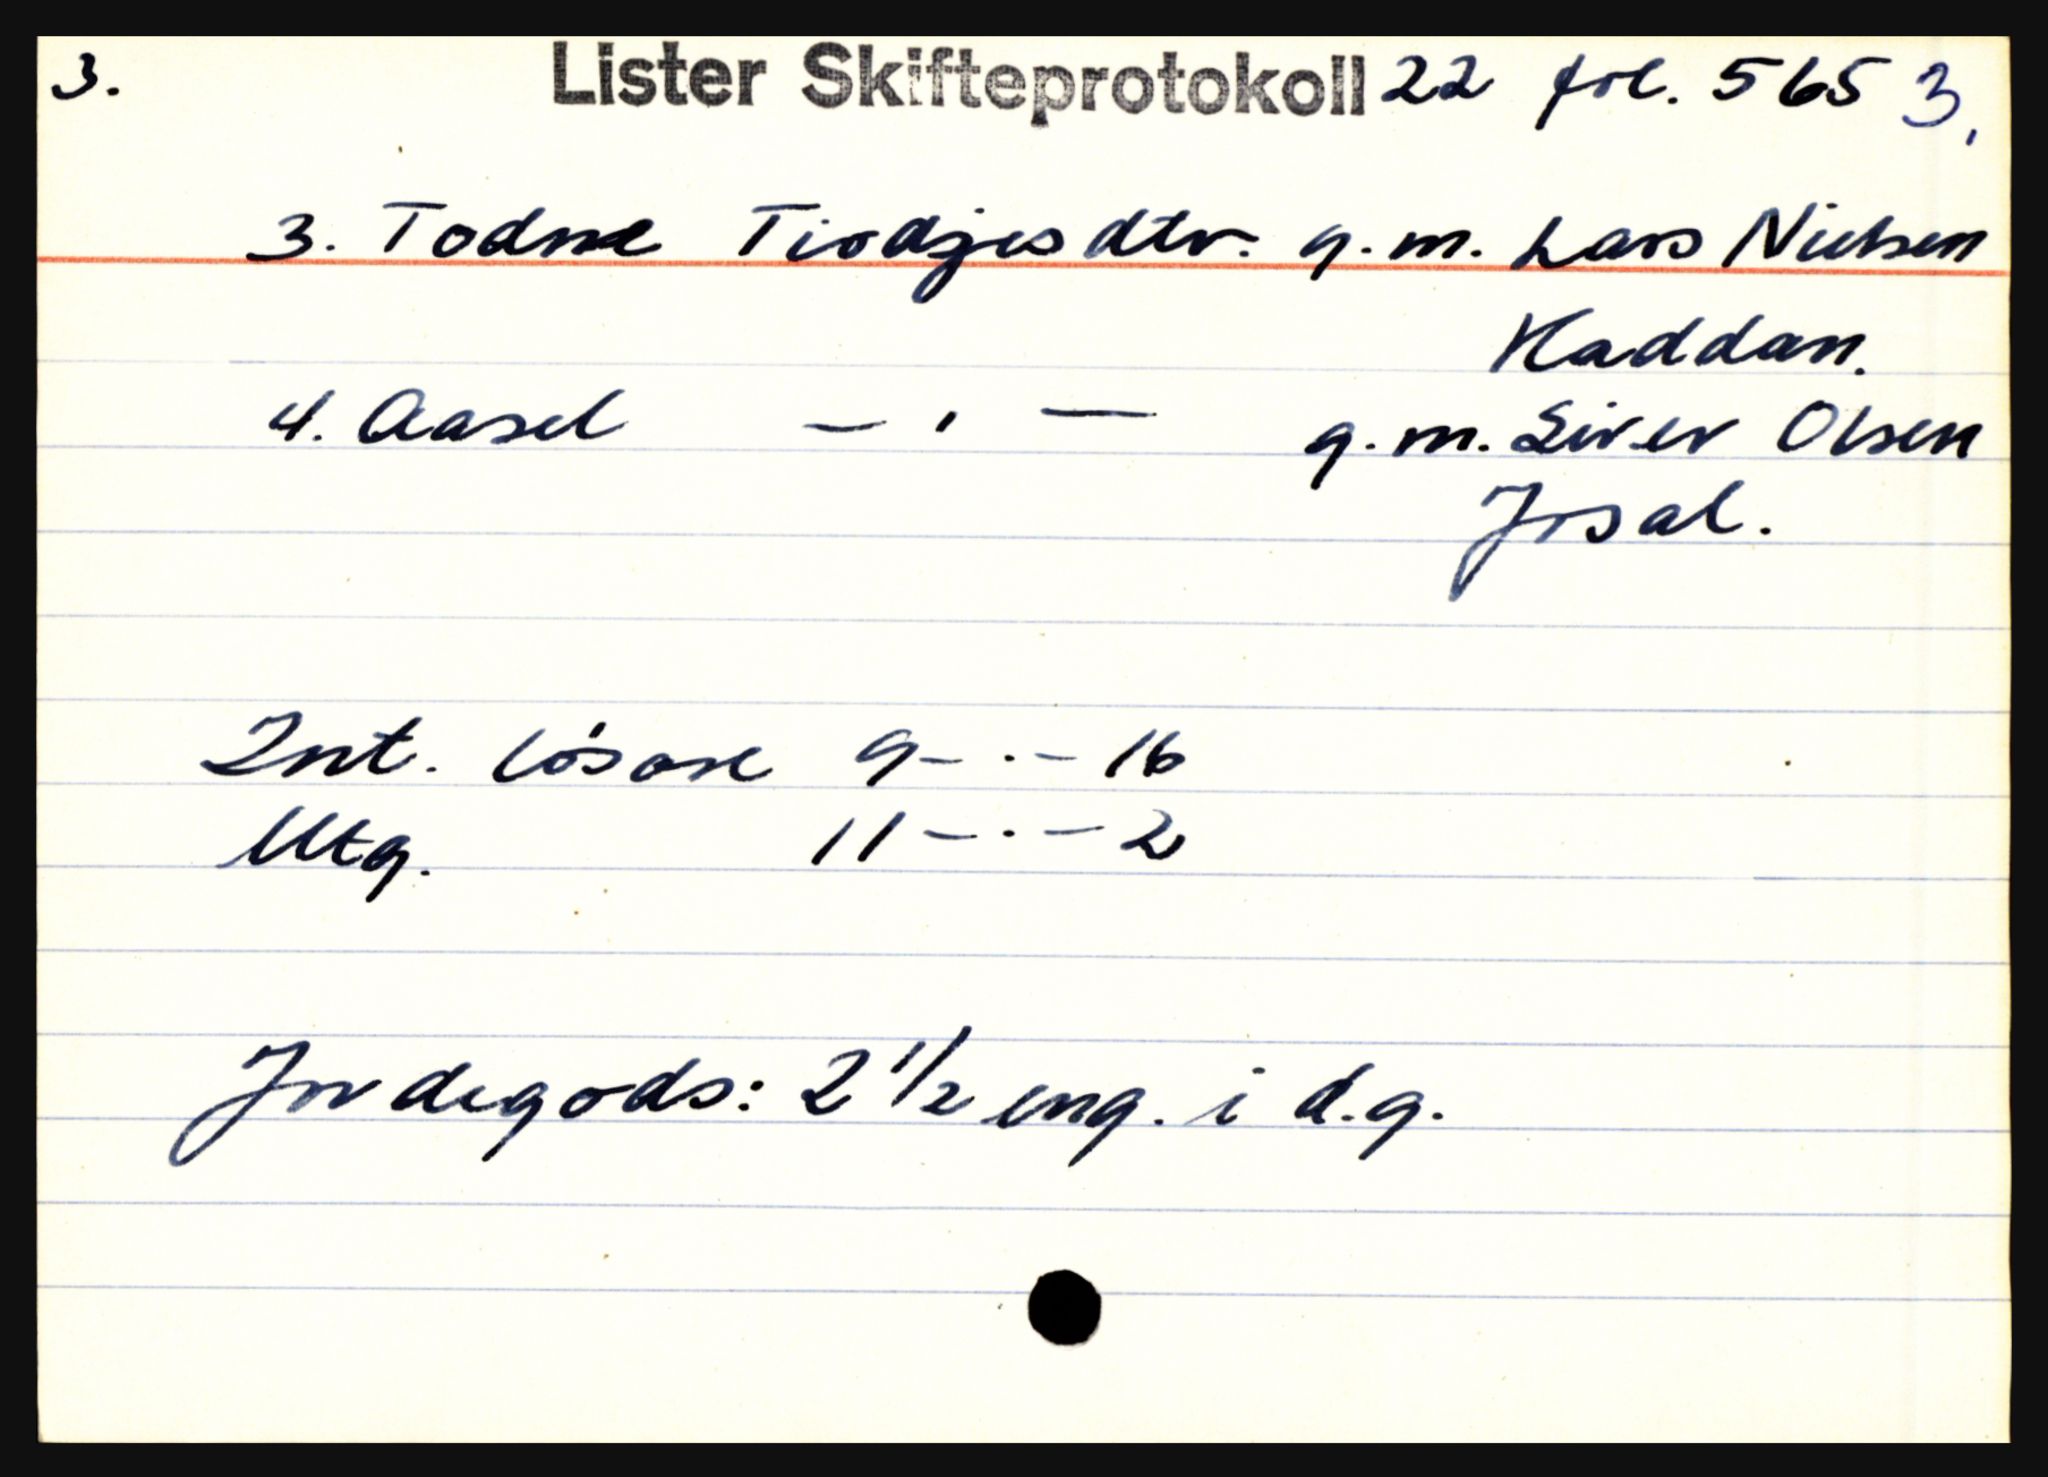 3. Lister Skifteprotokoll 22 fol. 565 3.
3. Todne Tiodjesdtr. g.m. Lars Nielsen
Haddan.
4. Aasel — , — g.m. Siver Olsen
Josal.
Int. lösöre 9 - . - 16
Utg. 11 - . - 2
Jordegods: 2 1/2 eng. i d.g.